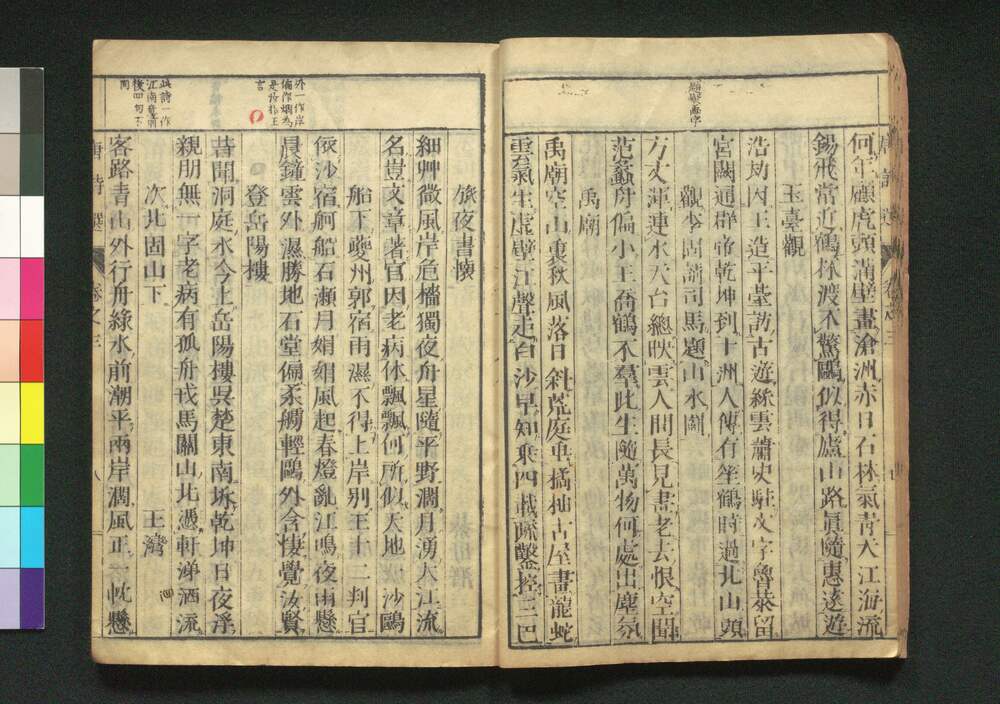 何年顧虎頭滿壁畫滄洲赤日石林氣青天江海流
錫飛常近鶴杯渡不驚鷗似得廬山路真隨惠遠遊
玉臺觀
浩劫因王造平臺訪古遊綵雲蕭史駐文字魯恭留
宮闕通群帝乾坤到十洲人傳有笙鶴時過北山頭
觀李固請司馬題山水圖
方丈渾連水天台總映雲人間長見畫老去恨空聞
范蠡舟偏小王喬鶴不羣此生隨萬物何處出塵氛
禹廟
禹廟空山裏秋風落日斜荒庭垂橘柚古屋畫龍蛇
雲氣生虛壁江聲走白沙早知乘四載疏鑿控三巴
外一作岸
偏作烟為
是傍作王
言
旅夜書懷
細艸微風岸危檣獨夜舟星隨平野濶月湧大江流
名豈文章著官因老病休飄飄何所似天地一沙鷗
船下夔州郭宿雨濕不得上岸別王十二判官
依沙宿舸船石瀬月娟娟風起春燈亂江鳴夜雨懸
晨鐘雲外濕勝地石堂偏柔艣輕鷗外含悽覺汝賢
登岳陽樓
昔聞洞庭水今上岳陽樓吳楚東南坼乾坤日夜浮
親朋無一字老病有孤舟戎馬關山北憑軒涕洒流
此詩一作
江南意別
後四句不
同
次北固山下　王灣
客路青山外行舟綠水前潮平兩岸濶風正一帆懸
唐詩選　卷之三　八